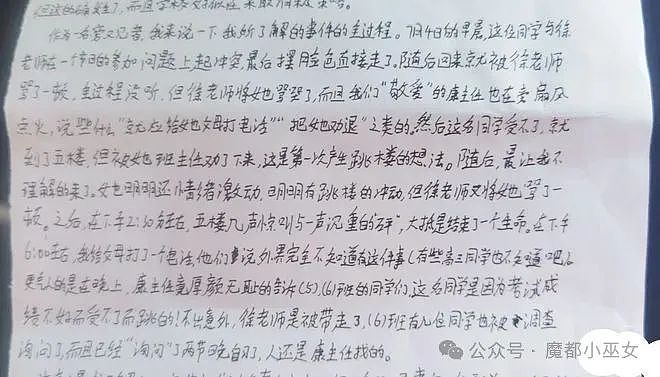 作为一名旁观者,我来说一下我所了解的事件的全过程。7月4日的早晨,这位同学与徐
老师在一个节目的参加问题上起冲突最后摆脸色直接走了。随后回来就被徐老师
骂了一顿,全过程没听,但徐老师将她骂哭了,而且我们“敬爱”的康主任也在旁扇风
点火,说些什么“就应给她父母打电话”“把她劝退”之类的。然后这名同学受不了,就
到了五楼,但被她班主任劝了下来,这是第一次产生跳楼的想法。随后,最让我不
理解的来了。她明明还情绪激动,明明有跳楼的冲动,但徐老师又将她骂了一
顿。之后,在下午2:30左右,五楼几声惊叫与一声沉重的“砰”,大抵是结束了一个生命。在下午
6:00左右,我给父母打了一个电话,他们说外界完全不知道有这件事(有些高三同学也不知道吧)。
更气人的是在晚上,康主任竟厚颜无耻的告诉(5)、(6)班的同学们,这名同学是因为考试成
绩不好而受不了而跳的!不出意外,徐老师是被带走了,(6)班有几位同学也被调查
询问了,而且已经“询问”了两节晚自习,人还是康主任找的。
公众号·魔都小巫女